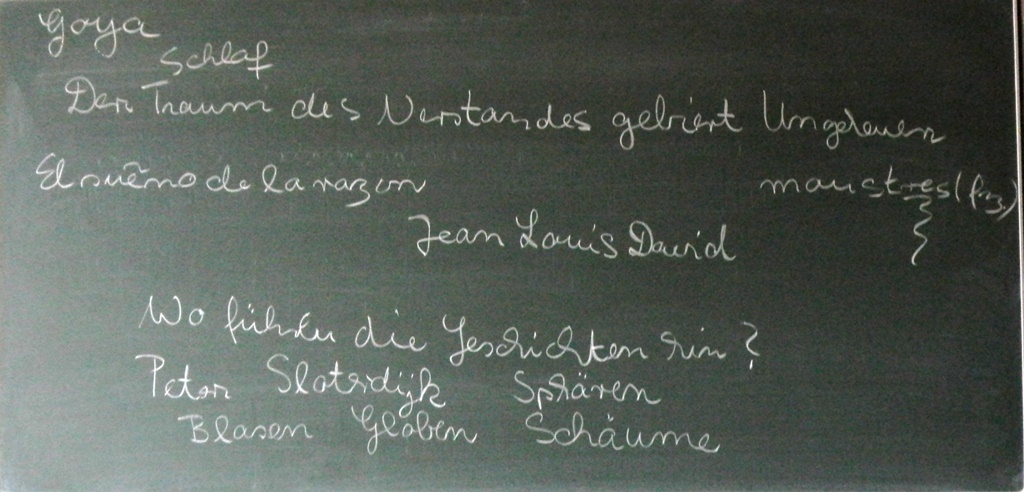 Goya
Schlaf
Der Traum des Verstandes gebiert Ungeheuer
El suẽno de la razon monstres (frz)
Jean Louis David
Wo führen die Geschichten hin?
Peter Sloterdijk Sphären
Blasen Globen Schäume